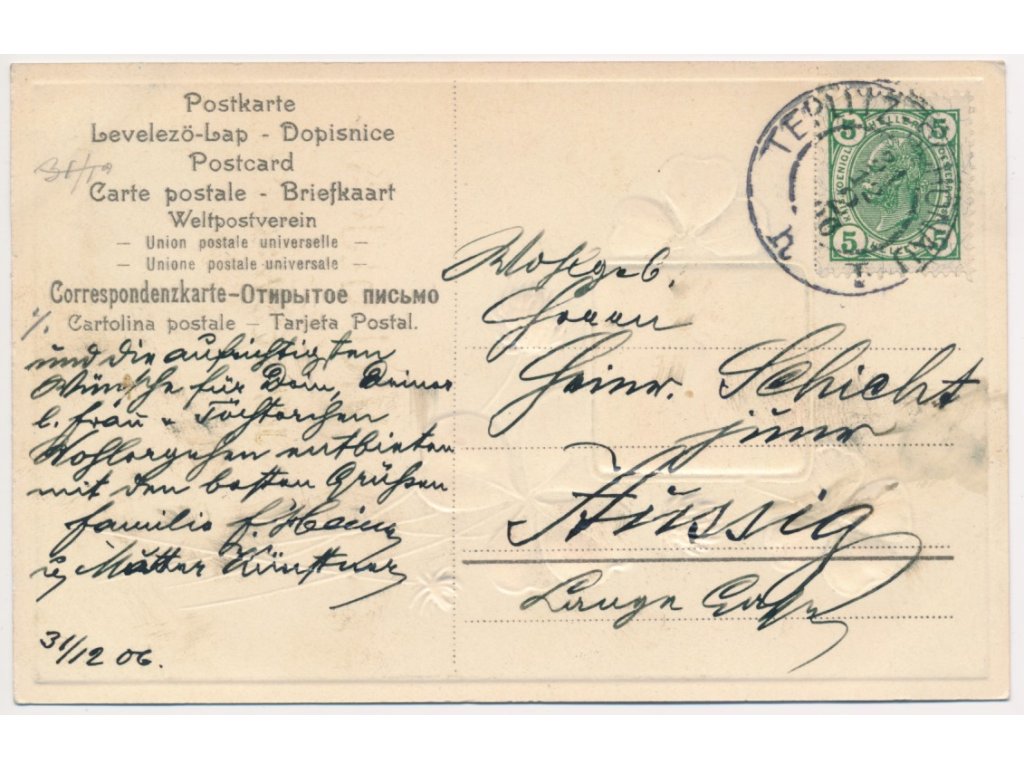 Postkarte
Levelezö-Lap - Dopisnice
Postcard
Carte postale - Briefkaart
Weltpostverein
— Union postale universelle —
— Unione postale universale —
Correspondenzkarte-Открытое письмо
Cartolina postale — Tarjeta Postal.
und die aufrichtigsten
Wünsche für Dein, Deiner
l. Frau u. Töchterchen
Wohlergehen entbieten
mit den besten Grüßen
Familie F. Hein
u. Mutter Künstner
31/12 06.
TEPLITZ
5 HELLER 5
5 5
Wohlgeb.
Herrn
Heinr. Schicht
junr
Aussig
Lange Gasse